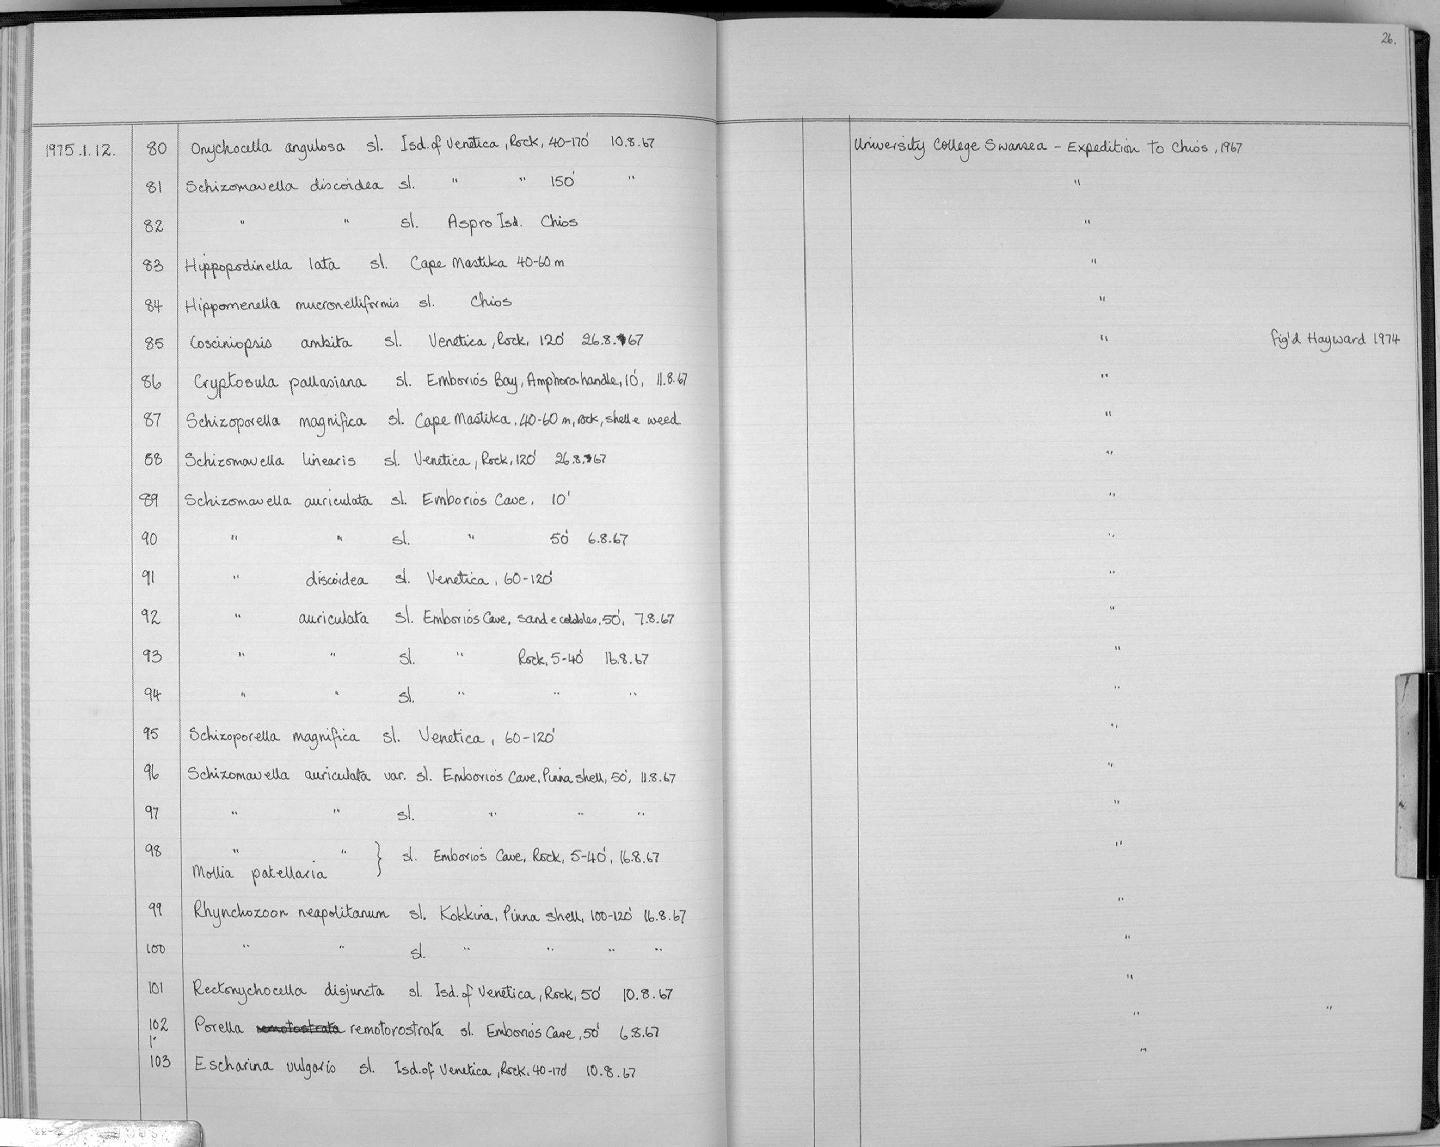 26.
1975.1.12. 80 Onychocella angulosa sl. Isd. of Venetica, Rock, 40-170' 10.8.67 University College Swansea - Expedition to Chios, 1967
81 Schizomavella discoidea sl. " " 150' " "
82 " " sl. Aspro Isd. Chios "
83 Hippopodinella lata sl. Cape Mastika 40-60m "
84 Hippomenella mucronelliformis sl. Chios "
85 Cosciniopsis ambita sl. Venetica, Rock, 120' 26.8.67 " fig'd Hayward 1974
86 Cryptosula pallasiana sl. Emborios Bay, Amphora handle, 10', 11.8.67 "
87 Schizoporella magnifica sl. Cape Mastika, 40-60 m, rock, shell e weed "
88 Schizomavella linearis sl. Venetica, Rock, 120' 26.8.67 "
89 Schizomavella auriculata sl. Emborios Cave, 10' "
90 " " sl. " 50' 6.8.67 "
91 " discoidea sl. Venetica, 60-120' "
92 " auriculata sl. Emborios Cave, sand e cobbles, 50', 7.8.67 "
93 " " sl. " Rock, 5-40' 16.8.67 "
94 " " sl. " " " "
95 Schizoporella magnifica sl. Venetica, 60-120' "
96 Schizomavella auriculata var. sl. Emborios Cave, Pinna shell, 50', 11.8.67 "
97 " " sl. " " " "
98 " " } sl. Emborios Cave, Rock, 5-40', 16.8.67 "
Mollia patellaria
99 Rhynchozoon neapolitanum sl. Kokkina, Pinna shell, 100-120' 16.8.67 "
100 " " sl. " " " " "
101 Rectonychocella disjuncta sl. Isd. of Venetica, Rock, 50' 10.8.67 "
102 Porella remotostrata remotorostrata sl. Emborios Cave, 50' 6.8.67 " "
103 Escharina vulgaris sl. Isd. of Venetica, Rock, 40-170' 10.8.67 "